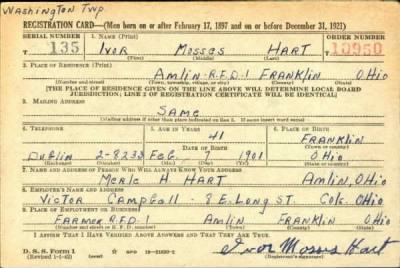 Washington Twp
REGISTRATION CARD—(Men born on or after February 17, 1897 and on or before December 31, 1921)
SERIAL NUMBER 1. NAME (Print) ORDER NUMBER
T 135 Ivor Mosses HART 10950
(First) (Middle) (Last)
2. PLACE OF RESIDENCE (Print)
Amlin-R.F.D.1 Franklin Ohio
(Number and street) (Town, township, village, or city) (County) (State)
[THE PLACE OF RESIDENCE GIVEN ON THE LINE ABOVE WILL DETERMINE LOCAL BOARD
JURISDICTION; LINE 2 OF REGISTRATION CERTIFICATE WILL BE IDENTICAL]
3. MAILING ADDRESS
SAME
[Mailing address if other than place indicated on line 2. If same insert word same]
4. TELEPHONE 5. AGE IN YEARS 6. PLACE OF BIRTH
41 Franklin
DATE OF BIRTH (Town or county)
Dublin 2-8233 Feb. 7 1901 Ohio
(Exchange) (Number) (Mo.) (Day) (Yr.) (State or country)
7. NAME AND ADDRESS OF PERSON WHO WILL ALWAYS KNOW YOUR ADDRESS
Merle H. HART Amlin, Ohio
8. EMPLOYER'S NAME AND ADDRESS
Victor Campball - 8 E. Long St. Cols. Ohio
9. PLACE OF EMPLOYMENT OR BUSINESS
Farmer R.F.D.1 Amlin Franklin Ohio
(Number and street or R. F. D. number) (Town) (County) (State)
I AFFIRM THAT I HAVE VERIFIED ABOVE ANSWERS AND THAT THEY ARE TRUE.
D. S. S. Form 1
(Revised 1-1-42) (over) GPO 16-21630-2 Ivor Mosses Hart
(Registrant's signature)